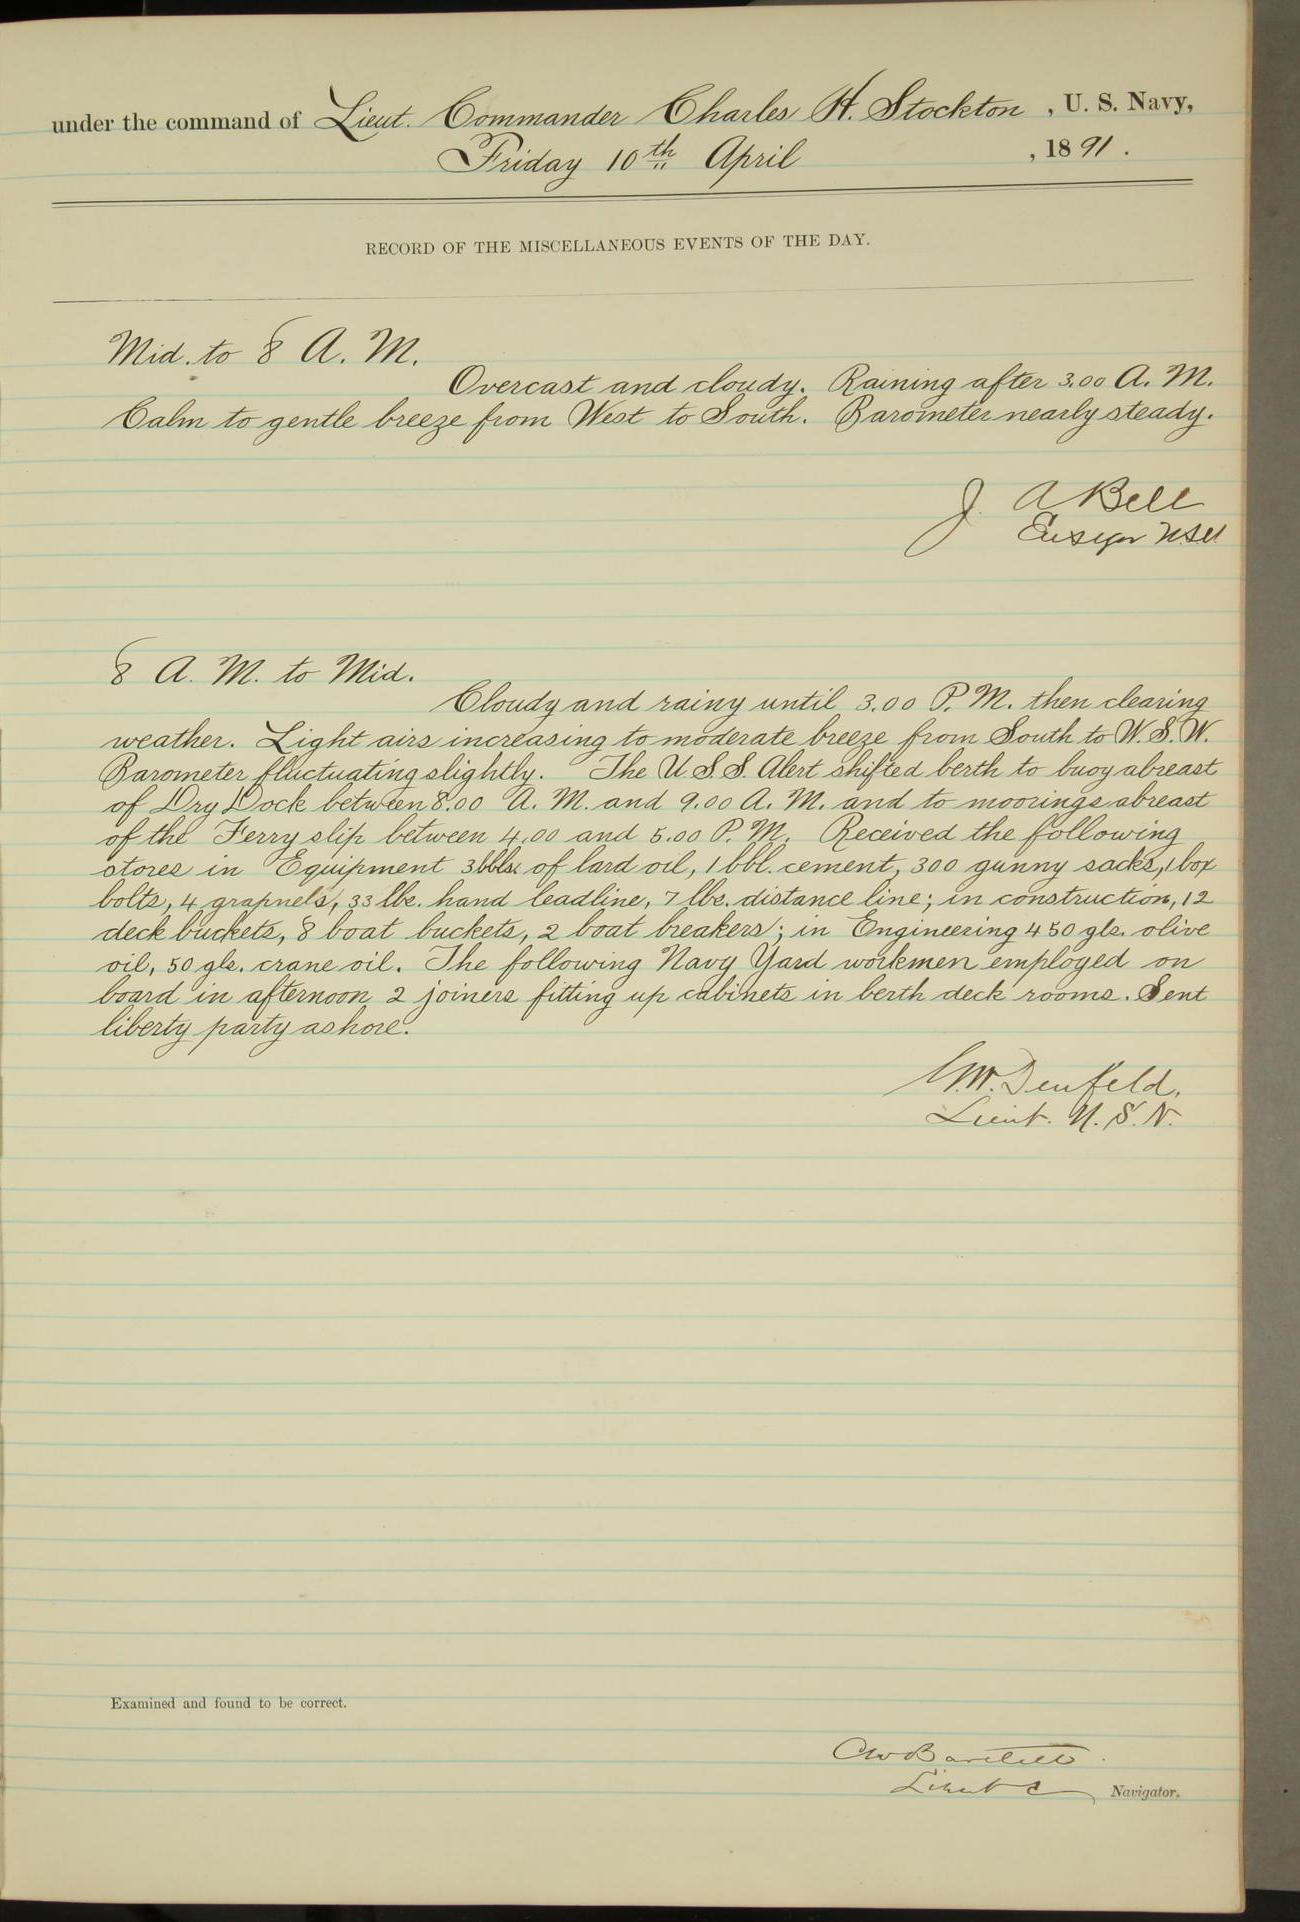 under the command of Lieut. Commander Charles H. Stockton, U. S. Navy,
Friday 10th April, 1891.
RECORD OF THE MISCELLANEOUS EVENTS OF THE DAY.
Mid. to 8 A. M.
Overcast and cloudy. Raining after 3.00 A. M.
Calm to gentle breeze from West to South. Barometer nearly steady.
J. A Bell
Ensign USN
8 A. M. to Mid.
Cloudy and rainy until 3.00 P. M. then clearing
weather. Light airs increasing to moderate breeze from South to W. S. W.
Barometer fluctuating slightly. The U. S. S. Alert shifted berth to buoy abreast
of Dry Dock between 8.00 A. M. and 9.00 A. M. and to moorings abreast
of the Ferry slip between 4.00 and 5.00 P. M. Received the following
stores in Equipment 3 bbls. of lard oil, 1 bbl. cement, 300 gunny sacks, 1 box
bolts, 4 grapnels, 33 lbs. hand leadline, 7 lbs. distance line; in construction, 12
deck buckets, 8 boat buckets, 2 boat breakers; in Engineering 450 gls. olive
oil, 50 gls. crane oil. The following Navy Yard workmen employed on
board in afternoon 2 joiners fitting up cabinets in berth deck rooms. Sent
liberty party ashore.
Denfeld,
Lieut. U. S. N.
Examined and found to be correct.
CW Bartlett
Lieut &
Navigator.